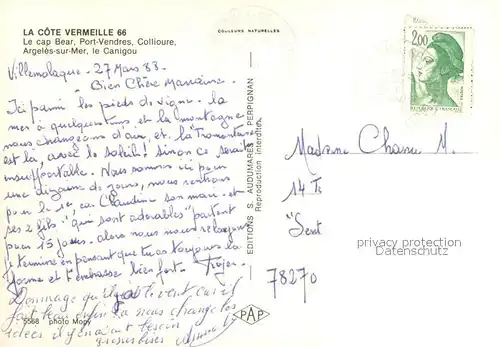 LA CÔTE VERMEILLE 66
Le cap Bear, Port-Vendres, Collioure,
Argelès-sur-Mer, le Canigou
COULEURS NATURELLES
Villemolaque - 27 Mars 83.
Bien Chère Marraine
Ici parmi les pieds de vigne. la
mer à quelques km et la montagne
nous changeons d'air, et la Tramontane
est là, avec le soleil! sinon ce serait
insupportable. Nous sommes ici pour
une dizaine de jours, nous rentrons
pour le 1er, car Claudine son mari et
ses 2 fils "qui sont adorables" partent
pour 15 jours. alors nous nous relayons
Je termine en pensant que tu as toujours la
forme et t'embrasse bien fort.
Dommage qu'il y ait le vent car il
fait beau enfin la nous change les
idées il y en avait besoin
grosses bises
5568 photo Mopy
EDITIONS S. AUDUMARES - PERPIGNAN
Reproduction interdite.
PAP
2,00
REPUBLIQUE FRANÇAISE
Madame M.
14
78270
privacy protection
Datenschutz